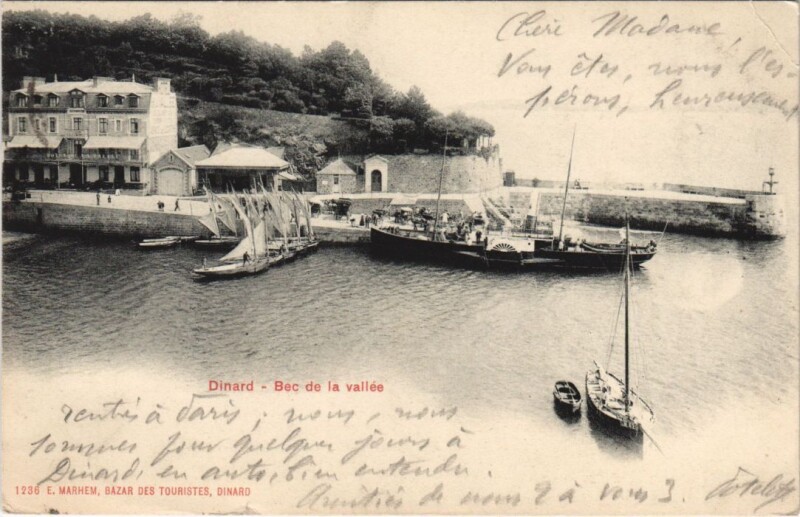 Chère Madame,
Vous êtes, nous l'es-
pérons, heureusement
Dinard - Bec de la vallée
rentés à Paris; nous nous
sommes pour quelques jours à
Dinard, en auto, bien entendu.
Amitiés de nous 2 à vous 3.
1236 E. MARHEM, BAZAR DES TOURISTES, DINARD